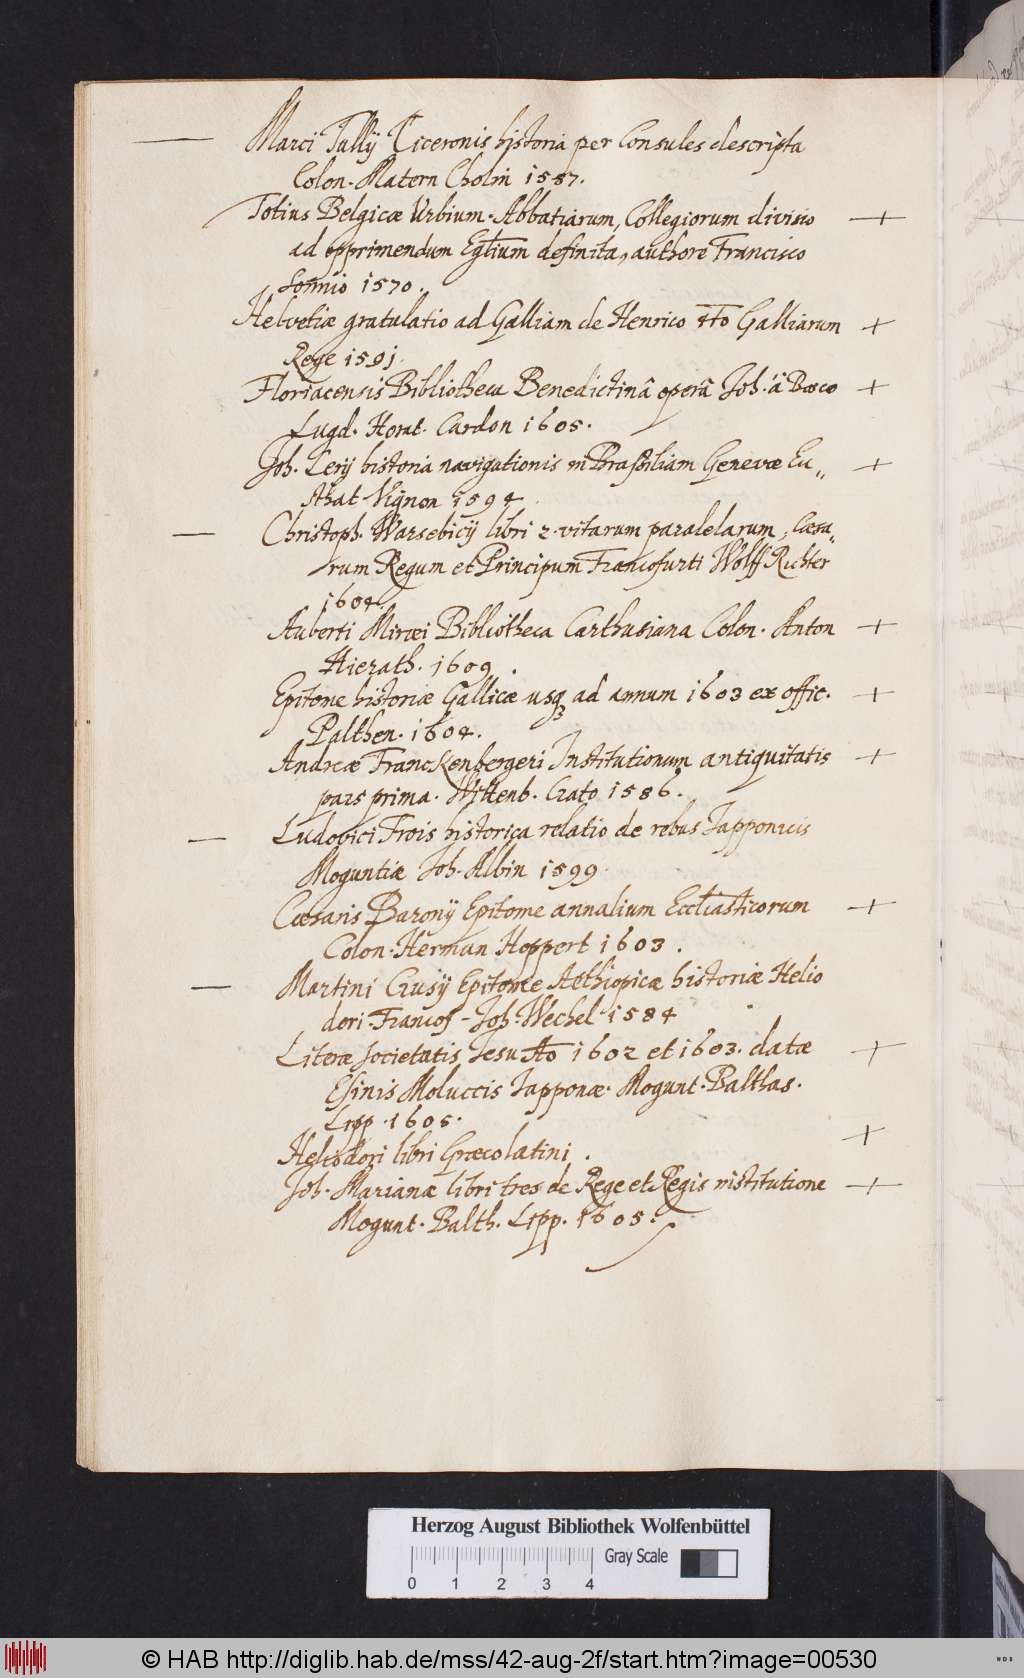 Marci Tullÿ Ciceronis historia per Consules descripta
Colon. Matern Cholin 1587.
Totius Belgicæ Urbium. Abbatiarum, Collegiorum divisio +
ad opprimendum Egtium definita, authore Francisco
Sonnio 1570.
Helvetiæ gratulatio ad Galliam de Henrico 4to Galliarum +
Rege 1591.
Floriacensis Bibliotheca Benedictinâ operâ Joh. â Bosco +
Lugd. Horat. Cardon 1605.
Joh. Lerÿ historia navigationis in Brasiliam Genevæ Eu„ +
sthat Vignon 1594.
Christoph. Warsebicÿ libri 2. vitarum paralelarum, Cæsa„
rum Regum et Principum Francofurti Wolff Richter
1604.
Auberti Miræi Bibliotheca Carthusiana Colon. Anton +
Hierath. 1609.
Epitome historiæ Gallicæ usq₃ ad annum 1603 ex offic. +
Palthen. 1604.
Andreæ Franckenbergeri Institutionum antiquitatis +
pars prima. Wittenb. Crato 1586.
Ludovici Frois historica relatio de rebus Japponicis
Moguntiæ Joh. Albin 1599.
Cæsaris Baronÿ Epitome annalium Eccliasticorum +
Colon. Herman Hoppert 1603.
Martini Crusÿ Epitome Aethiopicæ historiæ Helio
dori. Francof - Joh. Wechel 1584
Literæ Societatis Jesu Ao 1602 et 1603. datæ +
Esinis Moluccis Japponæ. Mogunt. Balthas.
Lipp. 1605.
Heliodori libri Græcolatini. +
Joh. Marianæ libri tres de Rege et Regis institutione +
Mogunt. Balth. Lipp. 1605.
Herzog August Bibliothek Wolfenbüttel
Gray Scale
0 1 2 3 4
© HAB http://diglib.hab.de/mss/42-aug-2f/start.htm?image=00530